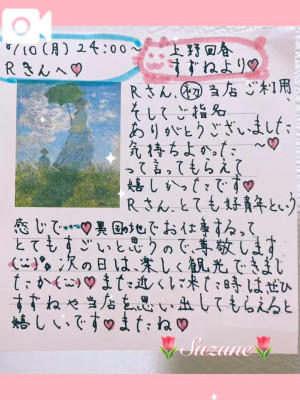 /10(月)24:00〜
Rさんへ♡
上野回春
すずねより♡
Rさん、初当店ご利用、
そしてご指名
ありがとうございました
気持ちよかった〜♡
って言ってもらえて
嬉しかったです♡
Rさん、とても好青年という
感じで…♡異国の地でお仕事するって
とてもすごいと思うので、尊敬します
(¨)次の日は、楽しく観光できまし
たか(¨)♡また近くに来た時はぜひ
すずねや当店を思い出してもらえると
嬉しいです♡またね♡
Suzune